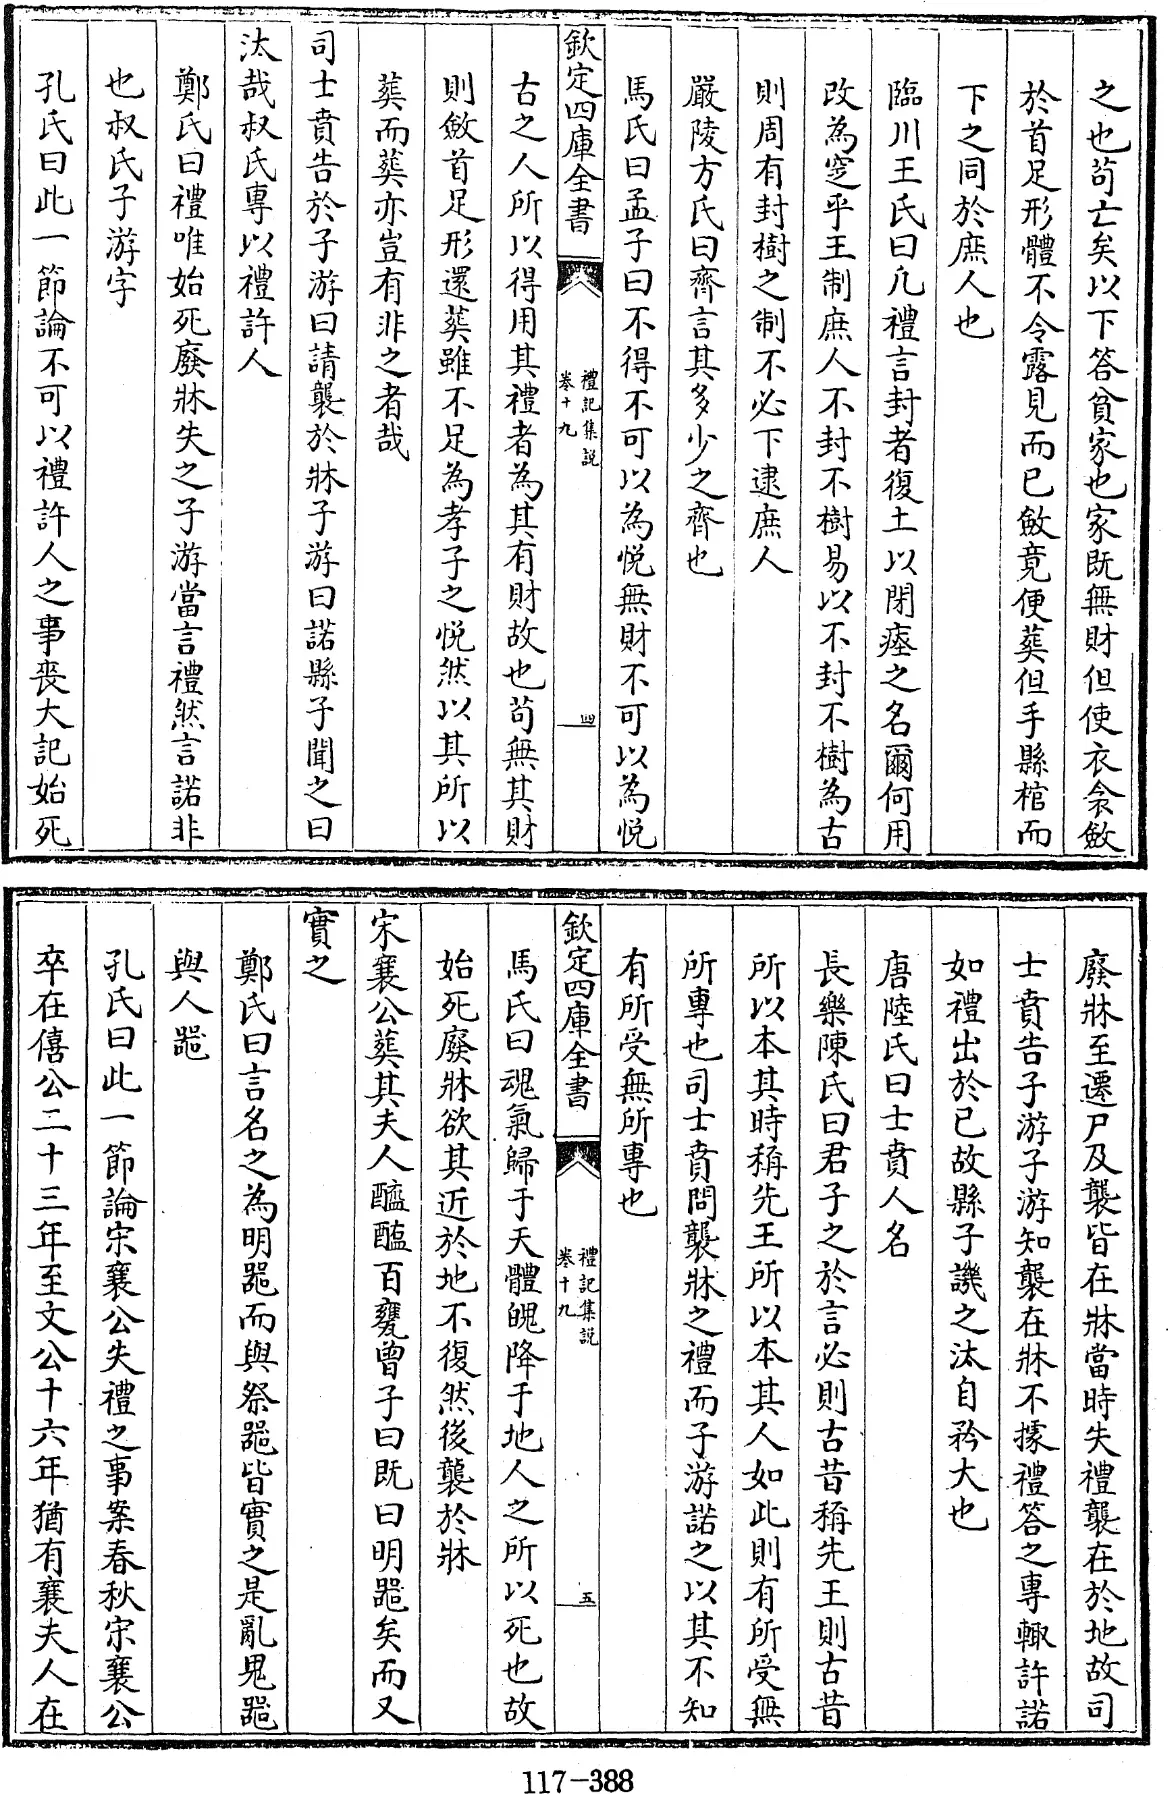 之也茍亡矣以下答貧家也家既無財但使衣衾斂
於首足形體不令露見而已斂竟便葬但手縣棺而
下之同於庶人也
臨川王氏曰凡禮言封者復土以閉瘞之名爾何用
改為窆乎王制庶人不封不樹易以不封不樹為古
則周有封樹之制不必下逮庶人
嚴陵方氏曰齊言其多少之齊也
馬氏曰孟子曰不得不可以為悅無財不可以為悅
欽定四庫全書
禮記集說
卷十九
四
古之人所以得用其禮者為其有財故也茍無其財
則斂首足形還葬雖不足為孝子之悅然以其所以
葬而葬亦豈有非之者哉
司士賁告於子游曰請襲於牀子游曰諾縣子聞之曰
汰哉叔氏專以禮許人
鄭氏曰禮唯始死廢牀失之子游當言禮然言諾非
也叔氏子游字
孔氏曰此一節論不可以禮許人之事喪大記始死
廢牀至遷尸及襲皆在牀當時失禮襲在於地故司
士賁告子游子游知襲在牀不據禮答之專輙許諾
如禮出於已故縣子譏之汰自矜大也
唐陸氏曰士賁人名
長樂陳氏曰君子之於言必則古昔稱先王則古昔
所以本其時稱先王所以本其人如此則有所受無
所專也司士賁問襲牀之禮而子游諾之以其不知
有所受無所專也
欽定四庫全書
禮記集說
卷十九
五
馬氏曰魂氣歸于天體魄降于地人之所以死也故
始死廢牀欲其近於地不復然後襲於牀
宋襄公葬其夫人醯醢百甕曾子曰既曰明噐矣而又
實之
鄭氏曰言名之為明噐而與祭噐皆實之是亂鬼噐
與人噐
孔氏曰此一節論宋襄公失禮之事案春秋宋襄公
卒在僖公二十三年至文公十六年猶有襄夫人在
117-388